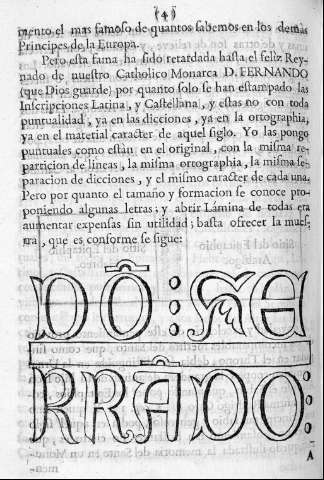 (4)
mento el mas famoso de quantos sabemos en los demás
Principes de la Europa.
Pero esta fama ha sido retardada hasta el feliz Rey-
nado de nuestro Catholico Monarca D. FERNANDO
(que Dios guarde) por quanto solo se han estampado las
Inscripciones Latina, y Castellana, y estas no con toda
puntualidad, ya en las dicciones, ya en la ortographia,
ya en el material caracter de aquel siglo. Yo las pongo
puntuales como están en el original, con la misma re-
particion de lineas, la misma ortographia, la misma se-
paracion de dicciones, y el mismo caracter de cada una.
Pero por quanto el tamaño y formacion se conoce pro-
poniendo algunas letras; y abrir Lámina de todas era
aumentar expensas sin utilidad; basta ofrecer la mues-
tra, que es conforme se sigue:
DÕ: FE
RRADO:
A